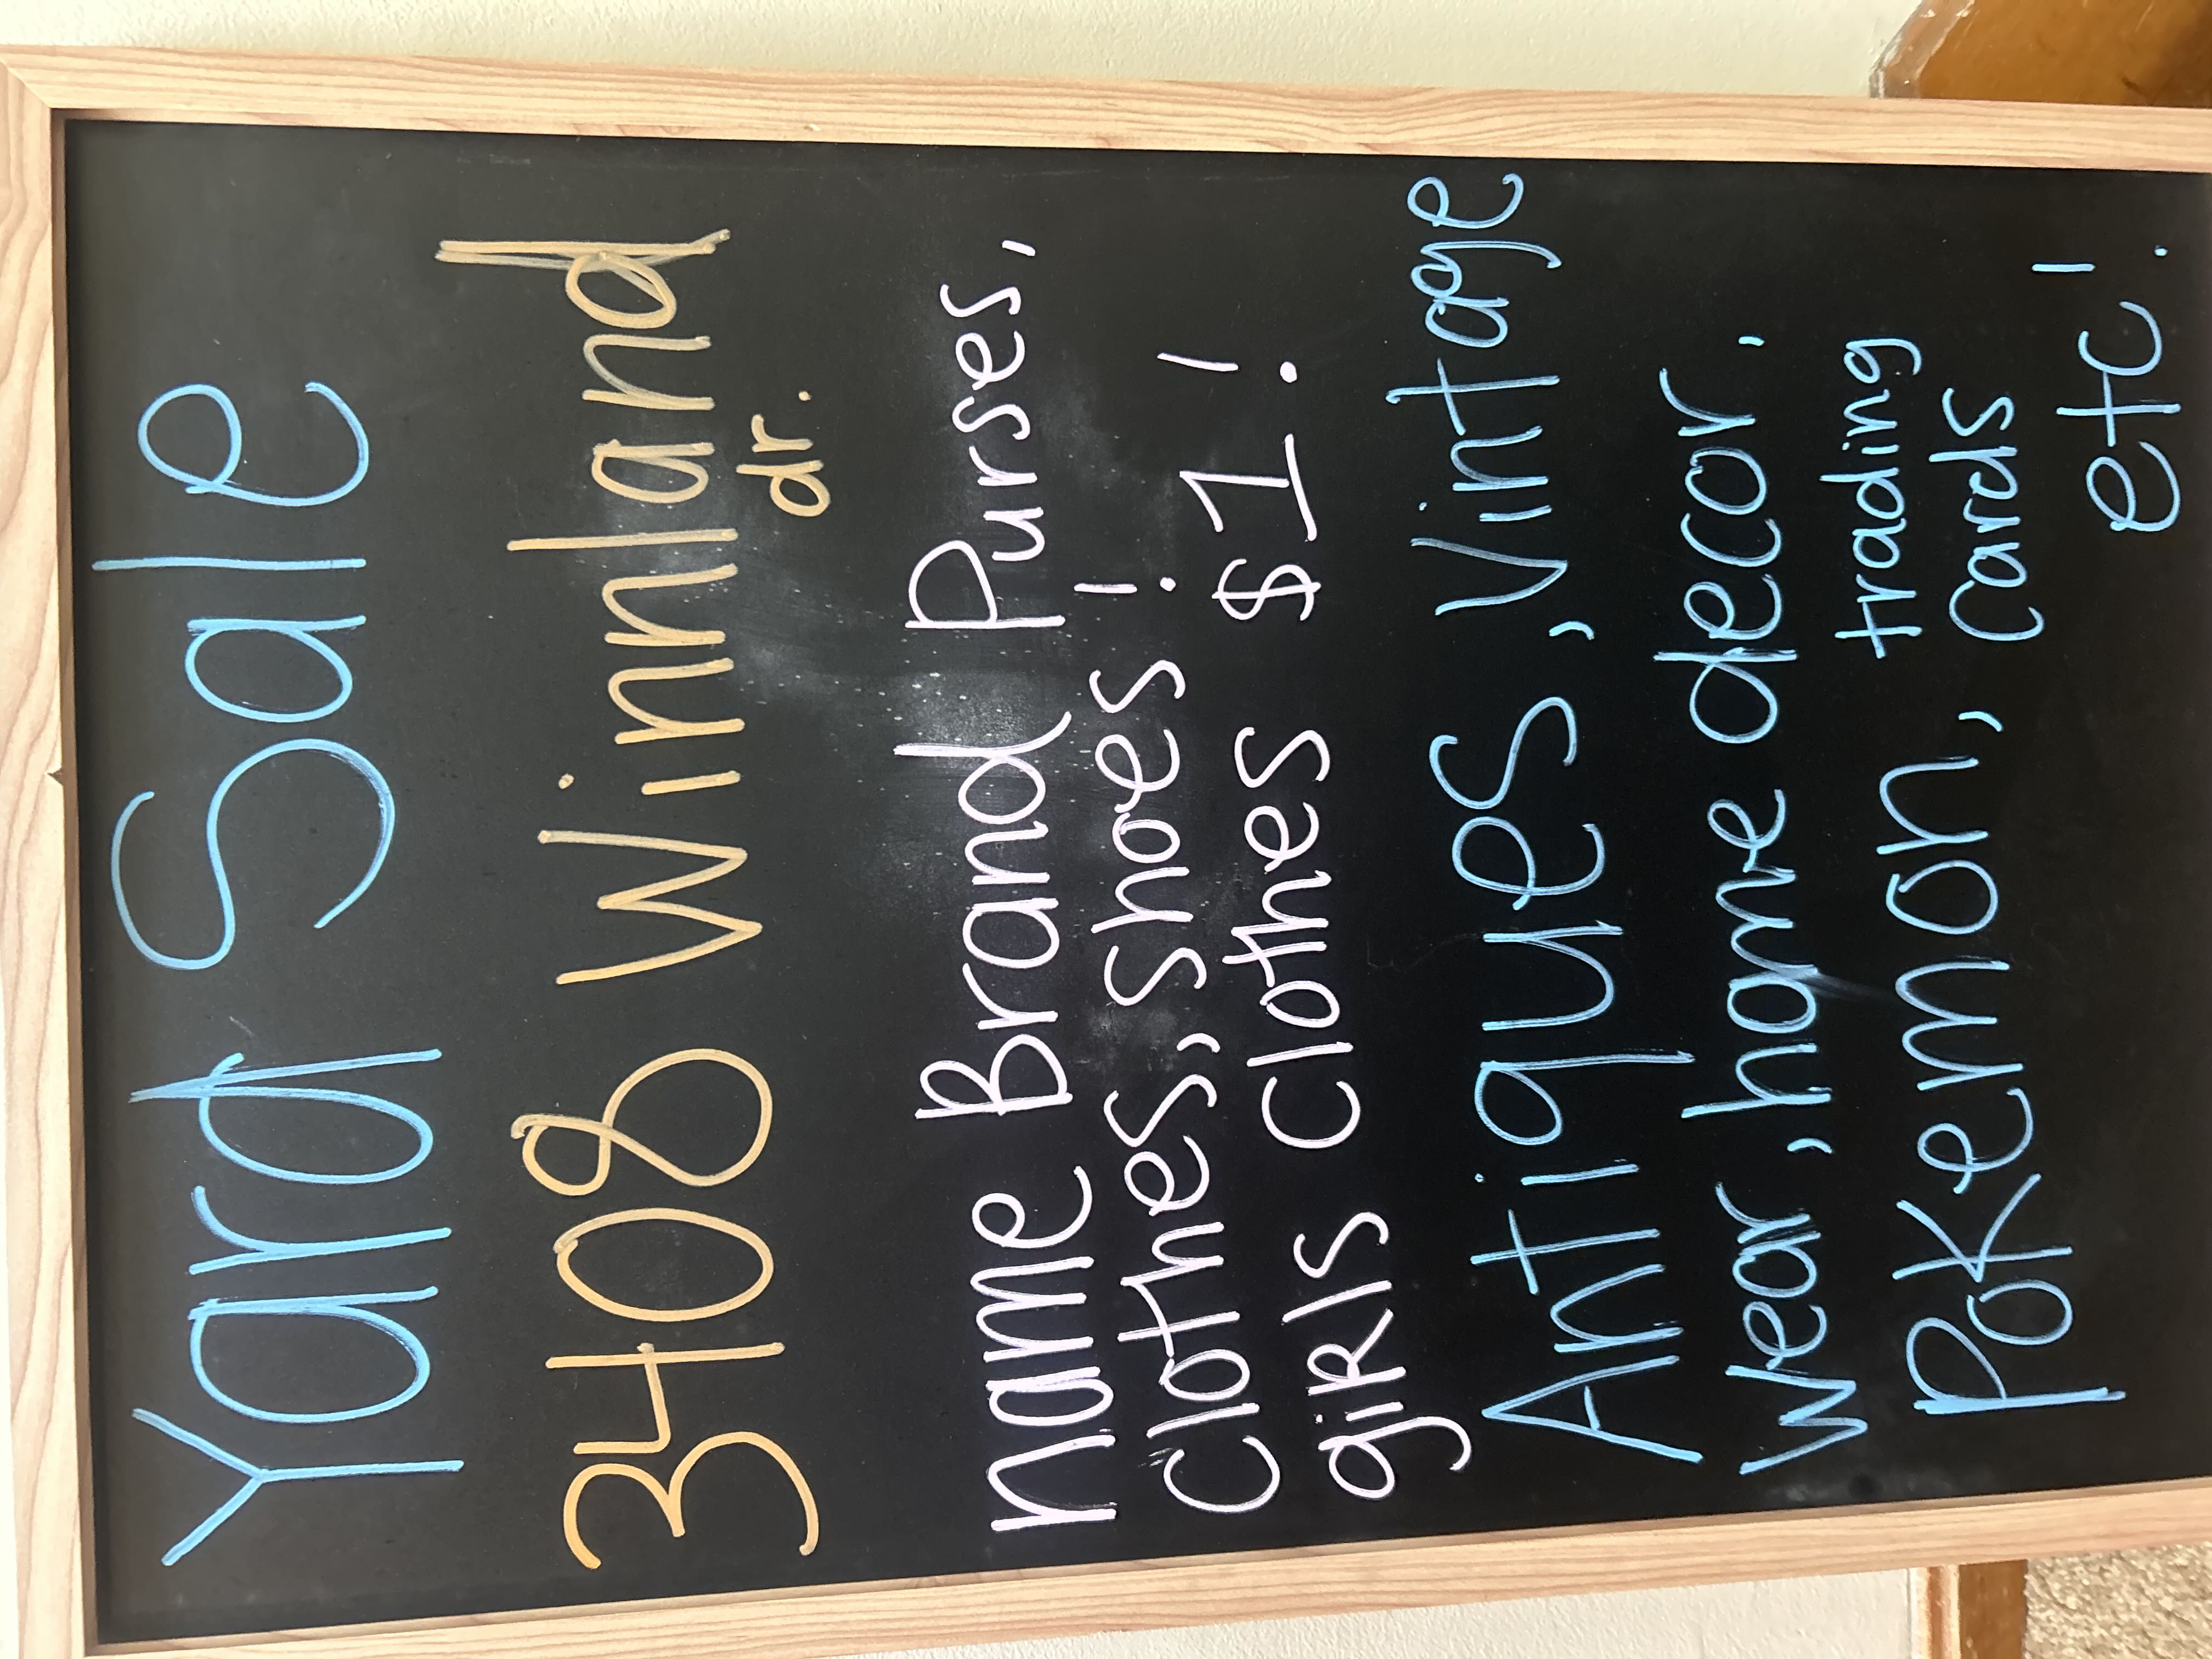 Yard Sale
3408 Winnland
dr.
name Brand Purses,
Clothes, shoes!
girls clothes $1!
Antiques, Vintage
wear, home decor,
Pokemon, trading
cards
etc!